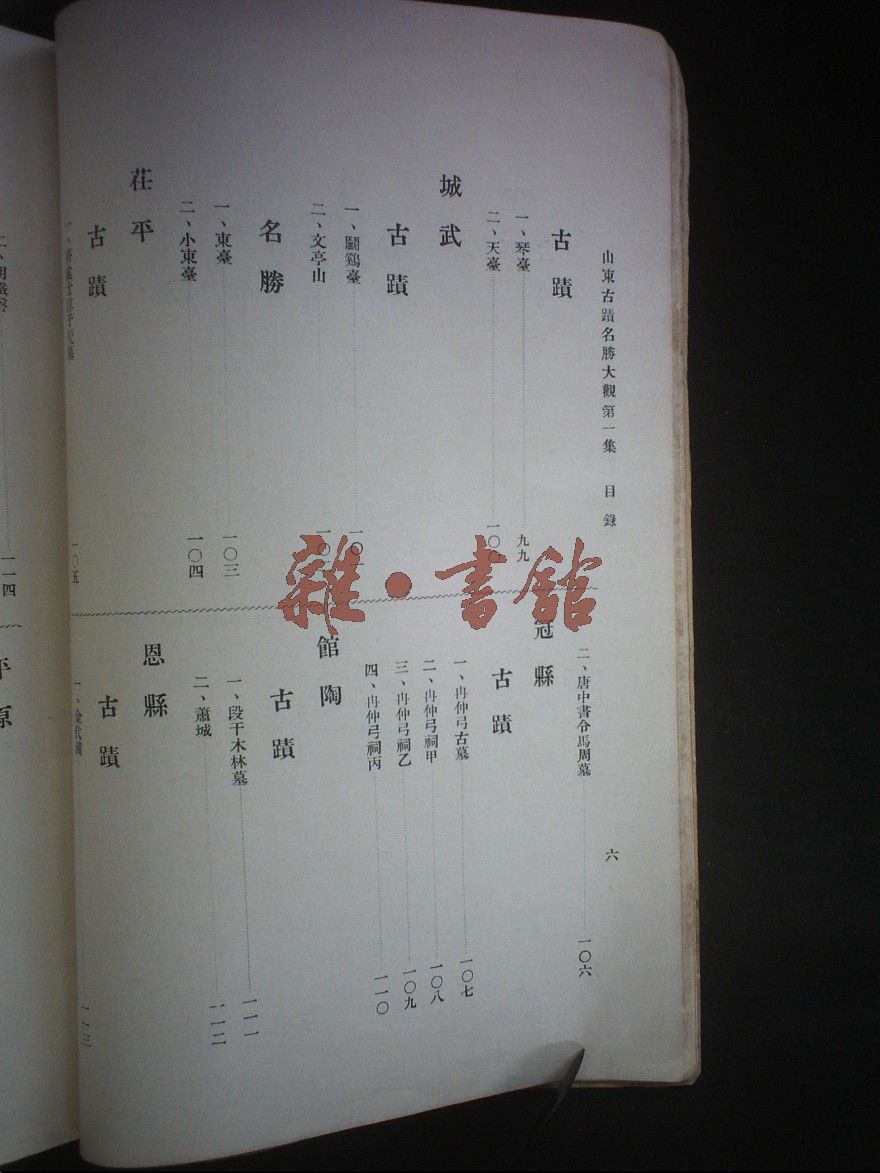 山東古蹟名勝大觀第一集 目錄 六
古蹟
一、琴臺 九九
二、天臺 一〇〇
城武
古蹟
一、鬭鷄臺
二、文亭山
名勝
一、東臺 一〇三
二、小東臺 一〇四
茌平
古蹟
一〇五
二、唐中書令馬周墓 一〇六
冠縣
古蹟
一、冉仲弓古墓 一〇七
二、冉仲弓祠甲 一〇八
三、冉仲弓祠乙 一〇九
四、冉仲弓祠丙 一一〇
館陶
古蹟
一、段干木林墓 一一一
二、蕭城 一一二
恩縣
古蹟
一、金代 一一三
一一四
平原
雜·書館